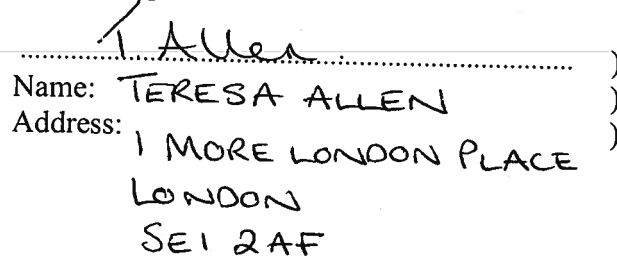 T. Allen
.................................................................. )
Name: TERESA ALLEN )
Address: )
1 MORE LONDON PLACE
LONDON
SE1 2AF